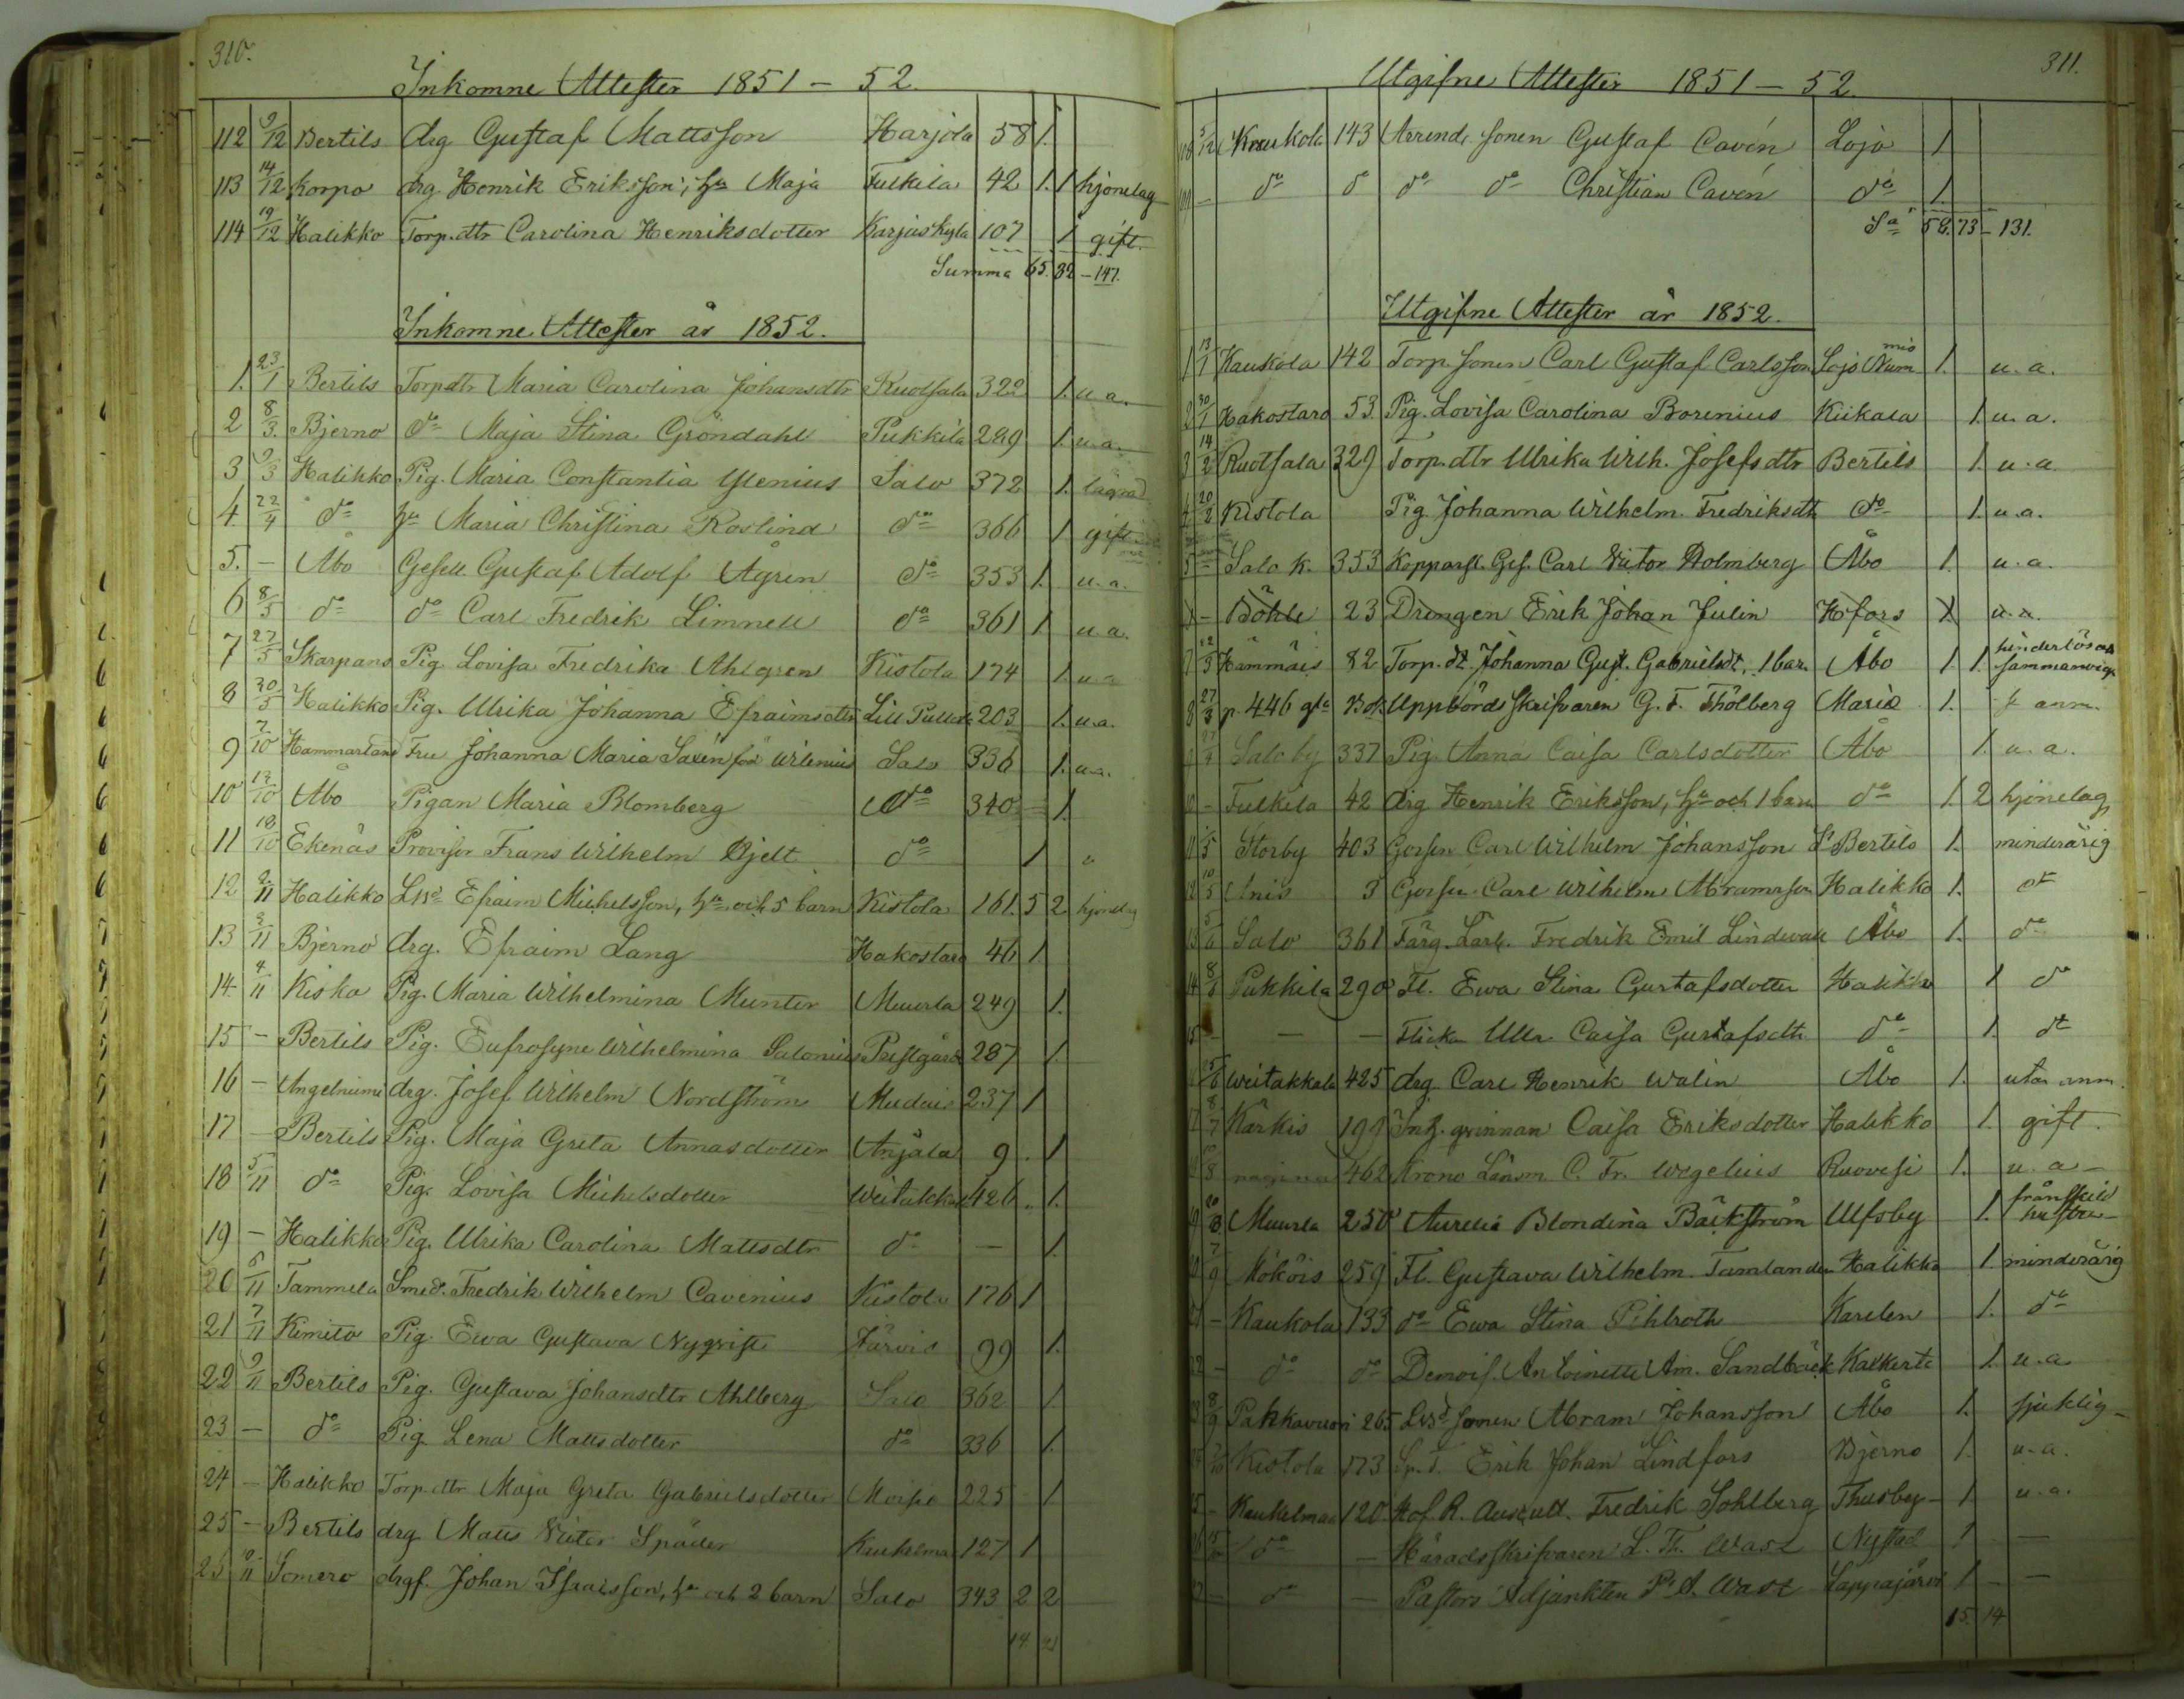 310.
Inkomne Attester 1851 – 52.
112 9/12 Bertils drg Gustaf Mattsson Harjola 58 1.
113 14/12 Korpo drg. Henrik Eriksson, hu Maja Fulkila 42 1. 1 hjonelag
114 19/12 Halikko Torp.dtr Carolina Henriksdotter Karjaskyla 107 1 gift.
Summa 65. 82 – 147.
Inkomne Attester år 1852.
1. 23/1 Bertils Torpdtr Maria Carolina Johansdtr Ruotsala 322 1. u.a.
2 8/3. Bjerno do Maja Stina Gröndahl Pukkila 299 1. u.a.
3 9/3 Halikko Pig. Maria Constantia Ylenius Salo 372 1.
4. 22/4 do hu Maria Christina Roslind do 366 1 gift
5. – Åbo Gesell. Gustaf Adolf Ågren do 353 1. u.a.
6 8/5 do do Carl Fredrik Limnell do 361 1 u.a.
7 27/5 Skarpans Pig. Lovisa Fredrika Ahlgren Kistola 174 1 u.a
8 30/5 Halikko Pig. Ulrika Johanna Efraimsdtr Lill 203 1. u.a.
9 7/10 Hammarland Fru Johanna Maria Saxén född Wilenius Salo 336 1. u.a.
10 13/10 Åbo Pigan Maria Blomberg do 340 – 1.
11 18/10 Ekenäs Provisor Frans Wilhelm Hjelt do 1
12 2/11 Halikko Efraim Michelsson, hu och 5 barn Kistola 161. 5 2 hjonelag
13 3/11 Bjerno drg. Efraim Lang Hakostaro 46 1.
14 4/11 Kisko Pig. Maria Wilhelmina Munter Muurla 249 1.
15 – Bertils Pig. Eufrosyne Wilhelmina Salonius Prestgård 287 1.
16 – Angelniemi drg. Josef Wilhelm Nordström Mudais 237 1
17 – Bertils Pig. Maja Greta Annasdotter Anjala 9. 1
18 5/11 do Pig. Lovisa Michelsdotter Weitakkala 426 1.
19 – Halikko Pig. Ulrika Carolina Mattsdtr do – 1.
20 6/11 Tammela Smed. Fredrik Wilhelm Cavenius Kistola 176 1
21 7/11 Kimito Pig. Ewa Gustava Nyqvist Järvis 99 1.
22 9/11 Bertils Pig. Gustava Johansdtr Ahlberg Salo 362 1.
23 – do Pig. Lena Mattsdotter do 336 1.
24 – Halikko Torp.dtr Maja Greta Gabrielsdotter Moisio 225 1
25 – Bertils drg Matts Victor Späder Kaukelma 127 1
25 Somero drgf. Johan Isaaksson, hu och 2 barn Salo 343 2 2
14 21
311.
Utgifne Attester 1851 – 52.
108 5/12 Kaukola 143 Arrend. sonen Gustaf Cavén Lojo 1
109 – do do do do Christian Cavén do 1.
Sa 58. 73 – 131.
Utgifne Attester år 1852.
1 13/1 Kaukola 142 Torp. sonen Carl Gustaf Carlsson Lojo Num mis 1. u.a.
2 30/1 Hakostaro 53 Pig. Lovisa Carolina Borenius Kiikala 1. u.a.
3 14/2 Ruotsala 329 Torp.dtr Ulrika Wilh. Josefsdtr Bertils 1. u.a.
4 20/2 Kistola Pig. Johanna Wilhelm. Fredriksdtr do 1. u.a.
5 Salo k. 353 Kopparsl. Ges. Carl Victor Holmberg Åbo 1. u.a.
– Böhle 23 Drengen Erik Johan Julin Hfors 1. u.a.
7 22/3 Hämmäis 82 Torp.dt. Johanna Gust. Gabrielsdt, 1 bar. Åbo 1. 1. hinderlös
8 27/3 p. 446 gla Bok Uppbördsskrifvaren G. F. Thölberg Mariæ 1. anm.
9 27/4 Salo by 337 Pig. Anna Caisa Carlsdotter Åbo 1. u.a.
10 – Fulkila 42 drg Henrik Eriksson, hu och 1 barn do 1. 2 hjonelag
11 1/5 Storby 403 Gossen Carl Wilhelm Johansson St Bertils 1. minderårig
12 10/5 Anis 3 Gossen Carl Wilhelm Abramsson Halikko 1. do
13 5/6 Salo 361 Färg. Lärl. Fredrik Emil Lindwall Åbo 1. do
14 8/6 Pukkila 290 Fl. Ewa Stina Gustafsdotter Halikko 1 do
15 – – – Flickan Ulla Caisa Gustafsdtr do 1. do
Weitakkala 425 drg. Carl Henrik Walin Åbo 1. utan anm.
17 8/7 Kärkis 199 Inh. qvinnan Caisa Eriksdotter Halikko 1. gift.
462 Krono Länsm. C. Fr. Wegelius Ruovesi 1. u.a –
19 Muurla 250 Aurelia Blondina Bäckström Ulfsby 1. frånskild hustru
20 7/9 Mököis 259 Fl. Gustava Wilhelm. Tamlander Halikko 1. minderårig
21 – Kaukola 133 do Ewa Stina Pihlroth Karelen 1. do
22 – do do Demois. Antoinette Am. Sandbäck Kalkerte 1. u.a
23 8/9 Pakkavuori 265 sonen Abram Johansson Åbo 1. sjuklig –
Kistola 173 Erik Johan Lindfors Bjerno 1. u.a.
25 – Kaukelmaa 120 Hof. R. Auscult. Fredrik Sohlberg Thusby – 1 u.a.
26 do – Häradsskrifvaren L. Th. Wast Nystad 1 –
27 – do – Pastors Adjunkten P. A. Wast Lappajärvi 1 – –
15. 14